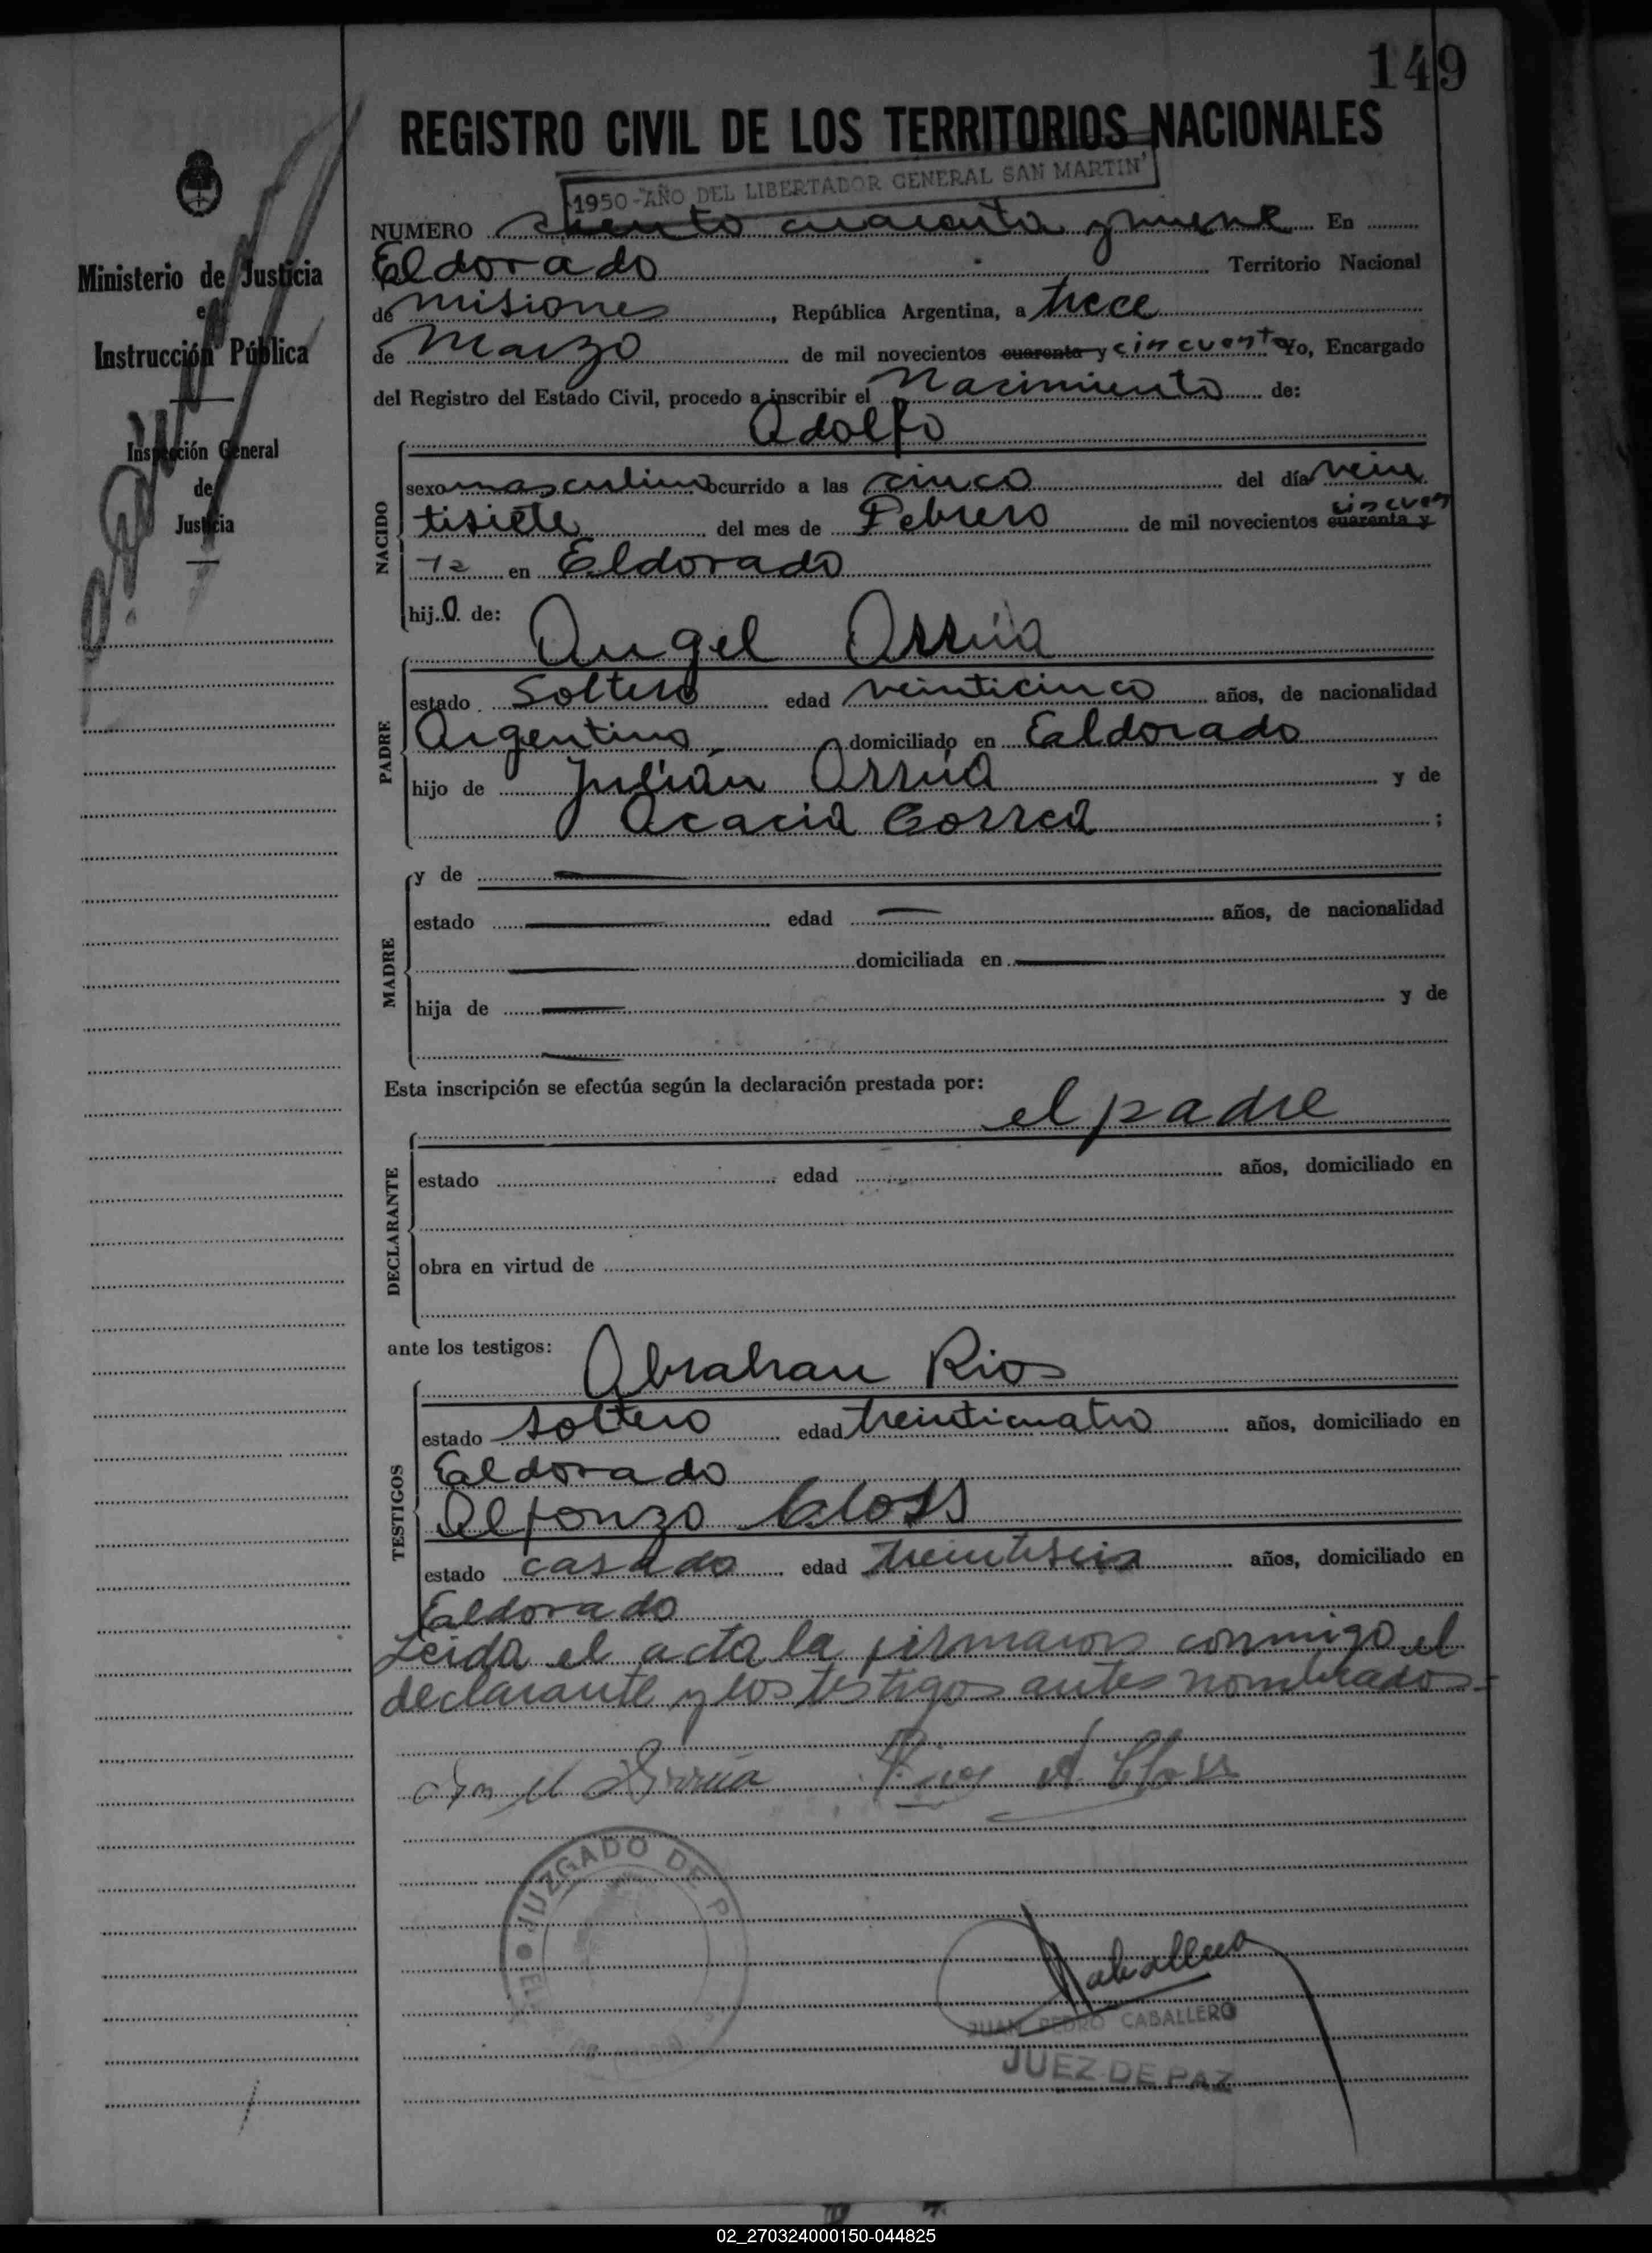 149
REGISTRO CIVIL DE LOS TERRITORIOS NACIONALES
1950-"AÑO DEL LIBERTADOR GENERAL SAN MARTIN"
NUMERO ciento cuarenta y nueve En
Eldorado Territorio Nacional
de Misiones, República Argentina, a trece
de Marzo de mil novecientos cuarenta y cincuenta Yo, Encargado
del Registro del Estado Civil, procedo a inscribir el Nacimiento de:
Adolfo
NACIDO
sexo masculino ocurrido a las cinco del día vein
tisiete del mes de Febrero de mil novecientos cuarenta y cincuen
ta en Eldorado
hijo de:
Angel Arrúa
PADRE
estado Soltero edad veinticinco años, de nacionalidad
Argentino, domiciliado en Eldorado
hijo de Julián Arrúa y de
Acacia Correa ;
MADRE
y de
estado edad años, de nacionalidad
domiciliada en
hija de y de
Esta inscripción se efectúa según la declaración prestada por:
el padre
DECLARANTE
estado edad años, domiciliado en
obra en virtud de
ante los testigos:
Abrahan Rios
TESTIGOS
estado soltero edad treinticuatro años, domiciliado en
Eldorado
Alfonzo Closs
estado casado edad treintiseis años, domiciliado en
Eldorado
Leida el acta la firmaron conmigo el
declarante y los testigos antes nombrados.-
Angel Arrúa Rios A. Closs
JUZGADO DE P
EL
Caballero
JUAN PEDRO CABALLERO
JUEZ DE PAZ
Ministerio de Justicia
e
Instrucción Pública
Inspección General
de
Justicia
02_270324000150-044825